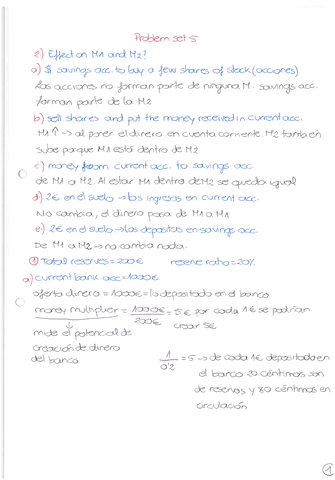 Problem set 5
2) Effect on M1 and M2?
a) $ savings acc. to buy a few shares of stock (acciones)
Las acciones no forman parte de ninguna M. savings acc.
forman parte de la M2
b) sell shares and put the money received in current acc.
M1 ↑ -> al poner el dinero en cuenta corriente. M2 también
sube porque M1 está dentro de M2
c) money from current acc. to savings acc.
de M1 a M2. Al estar M1 dentro de M2 se queda igual
d) 2€ en el suelo -> los ingresas en current acc.
No cambia, el dinero pasa de M1 a M1
e) 2€ en el suelo -> los depositas en savings acc.
De M1 a M2 -> no cambia nada.
① Total reserves = 200€ reserve ratio = 20%
a) current bank acc = 1000€
oferta dinero = 1000€ = lo depositado en el banco
money multiplier = 1000€ / 200€ = 5€ por cada 1€ se podrían
crear 5€
mide el potencial de
creación de dinero
del banco
1 / 0'2 = 5 -> de cada 1€ depositado en
el banco 20 céntimos son
de reservas y 80 céntimos en
circulación
1